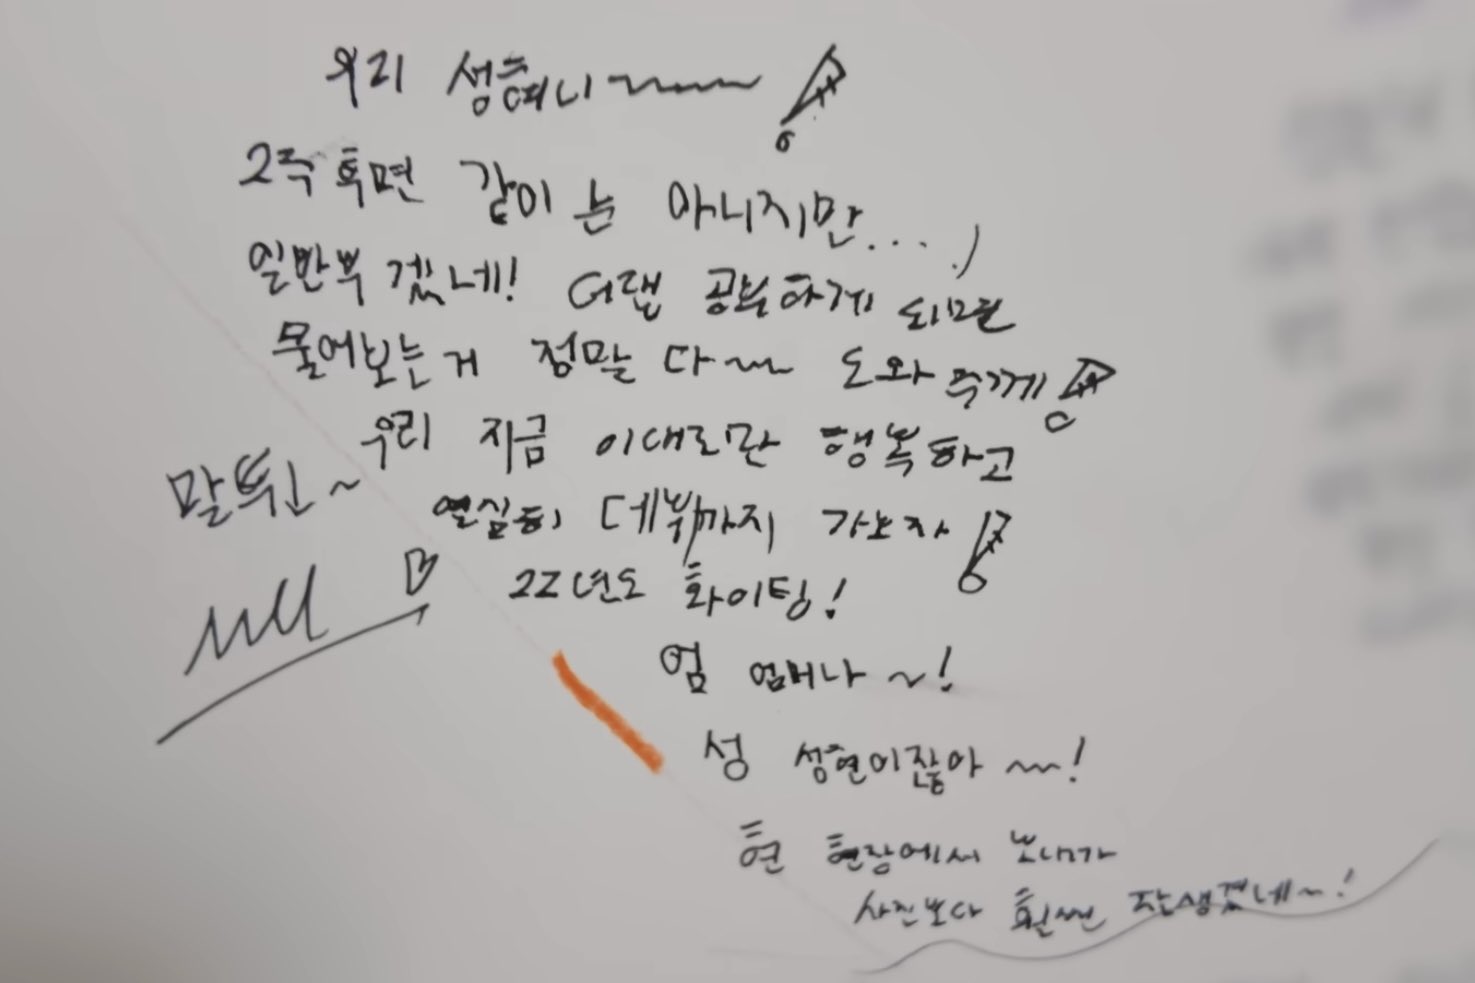 우리 성혀니~
2주 후면 같이는 아니지만....)
일반부 겠네! 더랩 공부하게 되면
물어보는거 정말 다~ 도와줄게!
우리 지금 이대로만 행복하고
열심히 데뷔까지 가보자!
말뛰는~
22년도 화이팅!
엄 엄머나~!
성 성현이잖아~!
현 현장에서 보니까
사진보다 훨씬 잘생겼네~!